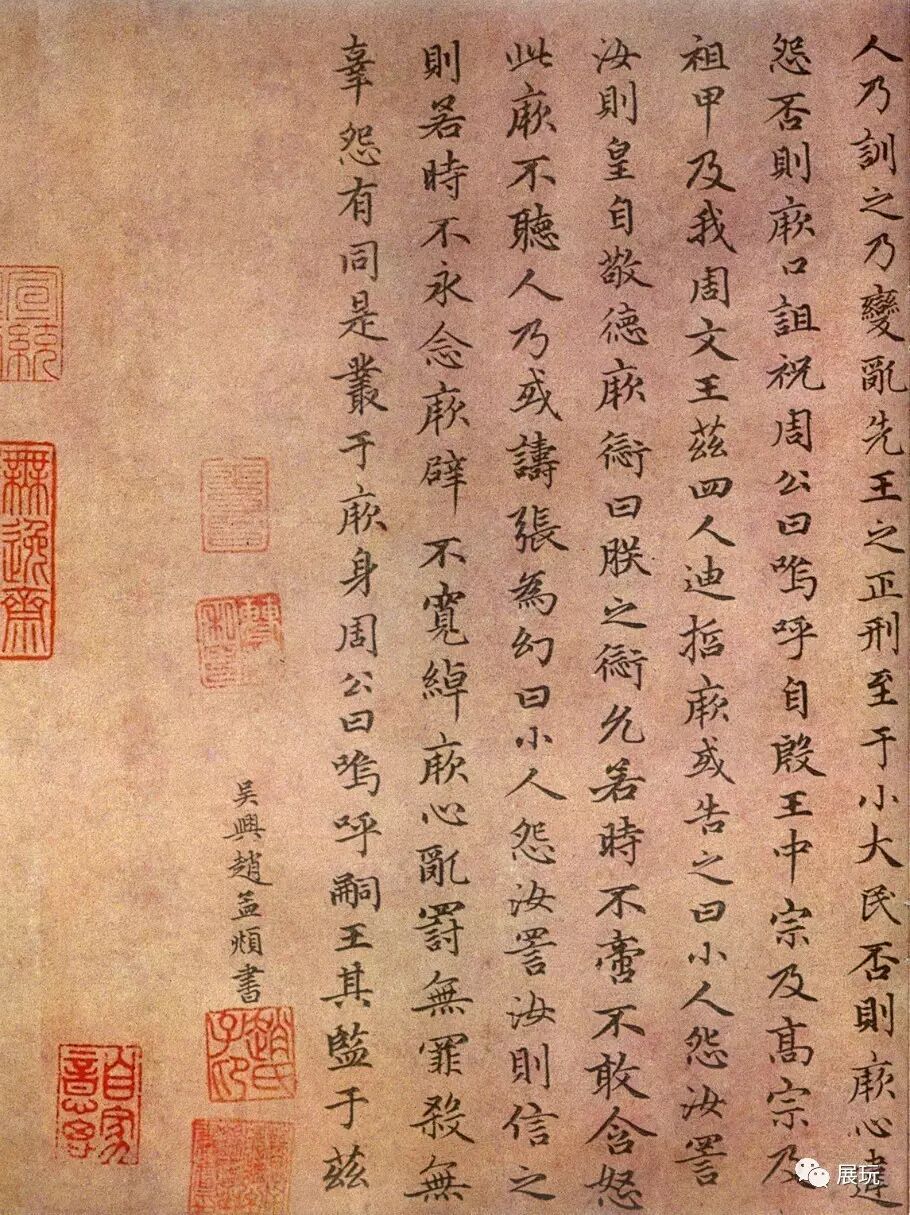 人乃訓之乃變亂先王之正刑至于小大民否則厥心違
怨否則厥口詛祝周公曰嗚呼自殷王中宗及高宗及
祖甲及我周文王茲四人迪哲厥或告之曰小人怨汝詈
汝則皇自敬德厥愆曰朕之愆允若時不啻不敢含怒
此厥不聽人乃或譸張為幻曰小人怨汝詈汝則信之
則若時不永念厥辟不寬綽厥心亂罰無罪殺無
辜怨有同是叢于厥身周公曰嗚呼嗣王其監于茲
吳興趙孟頫書
趙氏子昂
宣統
無逸齋
自家意思
展玩